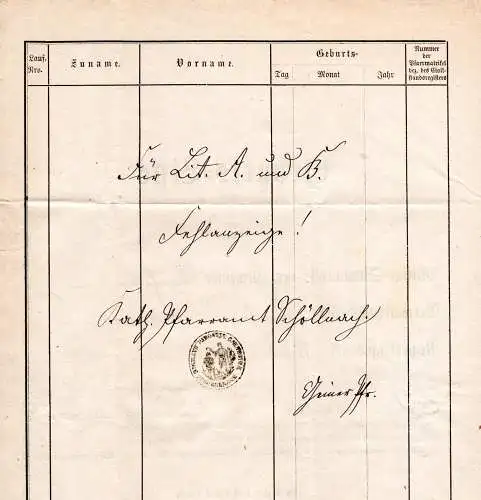 Geburts-
Nummer
der
Pfarrmatrikel
bez. des Civil-
standsregisters
Lauf.
Nro.
Zuname.
Vorname.
Tag
Monat
Jahr
Für Lit. A. und B.
Fehlanzeige!
Kath. Pfarramt Schöllnach.
Pfr.